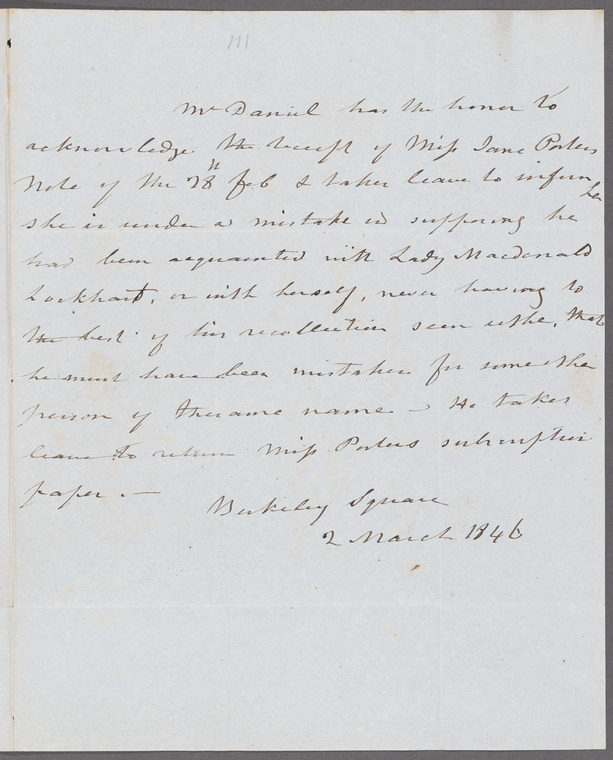 111
Mr Daniel has the honor to
acknowledge the receipt of Miss Jane Porters
Note of the 28th feb & takes leave to inform her
she is under a mistake in supposing he
had been acquainted with Lady Macdonald
Lockhart, or with herself, never having to
the best of his recollection seen either, that
he must have been mistaken for some other
person of the same name – He takes
leave to return Miss Porters subscription
paper. —
Berkeley Square
2 March 1846